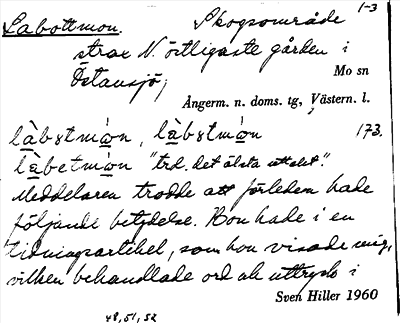 Labottmon. Skogsområde 1-3
strax N. östligaste gården i
Östansjö;
Mo sn
Angerm. n. doms. tg, Västern. l.
làbstmòn, làbstmòn 173.
làbetmòn "trol. det älsta uttalet".
Meddelaren trodde att förleden hade
följande betydelse. Hon hade i en
tidningsartikel, som hon visade mig,
vilken behandlade ord ock uttryck i
Sven Hiller 1960
48, 51, 52